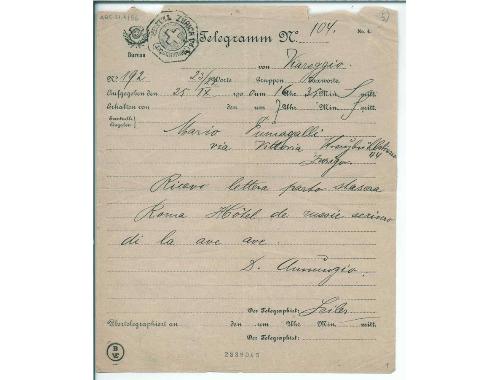 ARC.21.4/56
5)
Telegramm No. 104.
No. 4.
Bureau
von Viareggio
No. 192 23/ Worte Gruppen Taxworte.
Aufgegeben den 25/IX 190 um 16 Uhr 25 Min. S mitt.
Erhalten von den um 7 Uhr Min. S mitt.
Mario Fumagalli
via Vittoria
44
Zurigo
Ricevo lettera parto stasera
Roma Hôtel de russie scrivero
di la ave ave.
D. Annunzio.
Der Telegraphist:
Übertelegraphiert an den um Uhr Min. mitt.
Der Telegraphist:
B
W